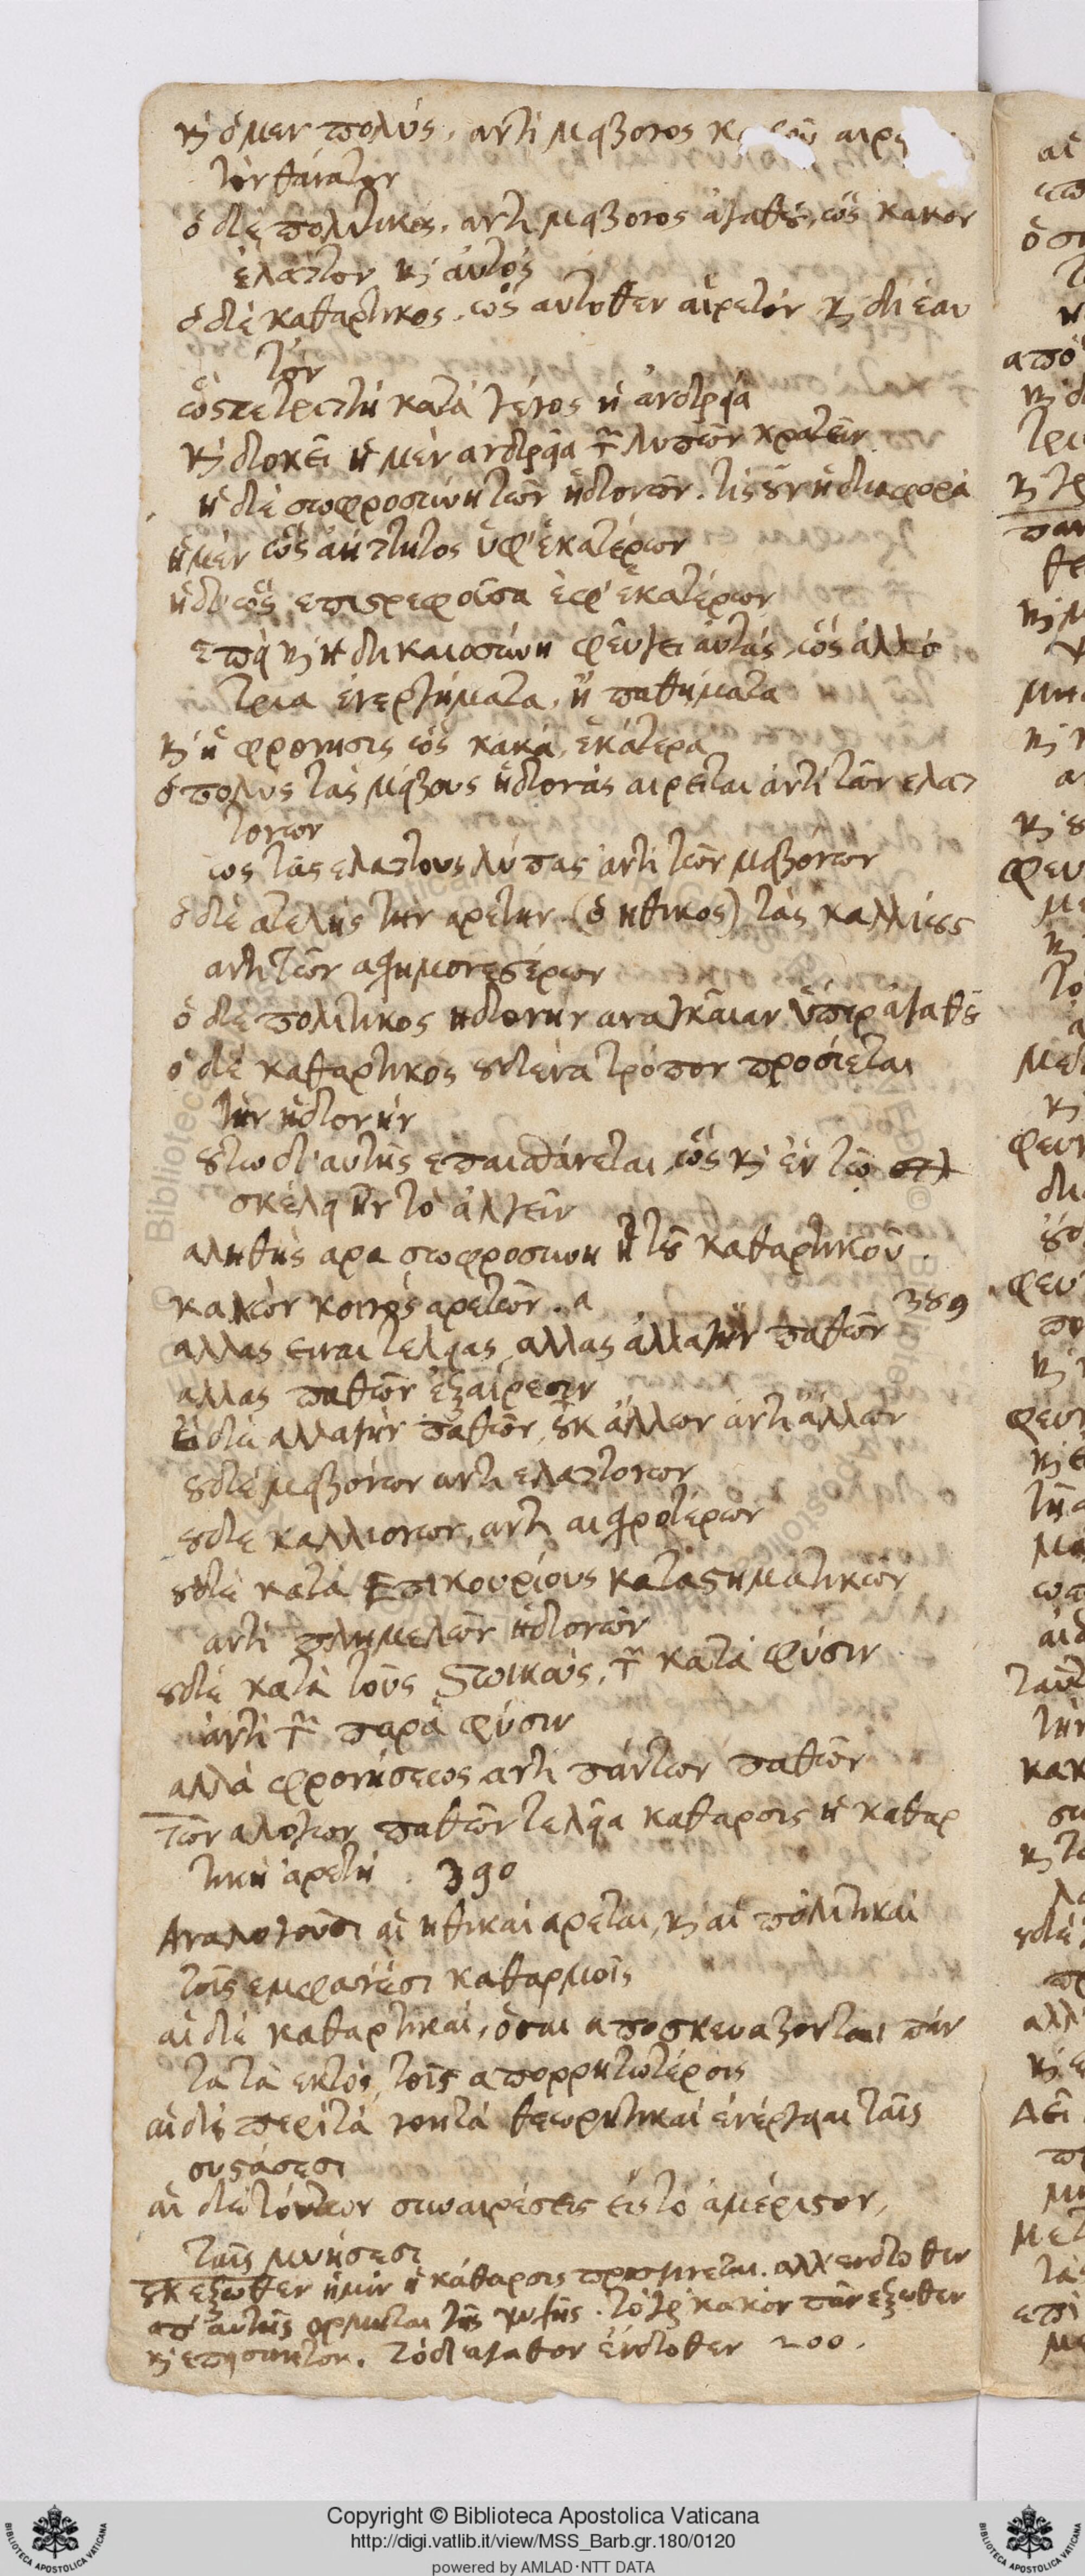 κ ὁ μὲν πολύς, ἀντὶ μείζονος κακοῦ αιρ
τὸν θάνατον
ὁ δὲ πολιτικός, αντὶ μείζονος ἀγαθοῦ, ὡς κακον
ἔλαττον κ αὐτὸς
ὁ δὲ καθαρτικος, ὡς αυτοθεν αἱρετὸν κ δι ἑαυ
τὸν
ὥσπερ τῆ κατὰ γένος ἡ ἀνδρεία
κ δοκεῖ ἡ μὲν ανδρεία τῶν λυπῶν κρατεῖν
ἡ δὲ σωφροσύνη τῶν ἡδονῶν. τίς οὖν ἡ διαφορὰ
ἡ μὲν ὡς ἀήττητος ὑφ' ἑκατέρων
ἡ δὲ ὡς επιστρεφοῦσα ἐφ' ἑκατέρων
επεὶ κ ἡ δικαιοσύνη φεύγει αὐτὰς, ὡς ἀλλό
τρια ἐνεργήματα, ἢ παθήματα
κ ἡ φρονησις ὡς κακὰ ἑκάτερα
ὁ πολὺς τὰς μείζους ἡδονὰς αιρεῖται ἀντὶ τῶν ελατ
τονων
ως τὰς ελαττους λύπας ἀντὶ τῶν μειζόνων
ὁ δὲ ατελὴς την αρετην (ὁ ηθικος) τὰς καλλίους
αντὶ τῶν ασχημονεστέρων
ὁ δὲ πολιτικος ηδονην αναγκαίαν ὑπὲρ ἀγαθοῦ
ὁ δὲ καθαρτικος ουδένα τρόπον προσίεται
τὴν ἡδονήν
οὕτω δ' αυτῆς επαισθάνεται, ὡς κ ἐν τῷ σκλ
σκέλει ἦν τὸ ἀλγεῖν
αληθὴς αρα σωφροσυνη ἡ τοῦ καθαρτικοῦ.
κανὼν κοινὸς αρετῶν. α 389
αλλας ειναι τελείας, αλλας ἀλλαγὴν παθῶν
αλλας παθῶν ἐξαίρεσιν
εἰ δὲ αλλαγὴν παθῶν, οὐκ ἄλλων ἀντὶ ἄλλων
ουδὲ μειζόνων αντὶ ελαττονων
ουδὲ καλλιονων, αντὶ αισχροτέρων
ουδὲ κατὰ Επικουρίους καταστηματικῶν
αντὶ πλημελῶν ἡδονῶν
ουδὲ κατὰ τοὺς Στωικοὺς, τῶν κατὰ φύσιν
ἀντὶ τῶν παρὰ φύσιν
αλλὰ φρονήσεως αντὶ πάντων παθῶν
Τῶν αλογων παθῶν τελεία καθαρσις ἡ καθαρ
τικὴ ἀρετὴ. 390
Αναλογοῦσι αἱ ηθικαὶ αρεταὶ, κ αἱ πολιτικαὶ
τοῖς εμφανέσι καθαρμοῖς
αἱ δὲ καθαρτικαὶ, ὅσαι αποσκευαζονται πάν
τα τὰ εκτὸς, τοῖς απορρητωτέροις
αἱ δὲ περὶ τὰ νοητὰ θεωρητικαὶ ἐνέργειαι ταῖς
συστάσεσι
αἱ δὲ τούτων συναιρέσεις εἰς τὸ ἀμέριστον,
ταῖς μυήσεσι
οὐκ εξωθεν ἡμῖν ἡ κάθαρσις προσγινεται. αλλ ενδοθεν
απ' αυτῆς ορμᾶται τῆς ψυχῆς. τὸ γὰρ κακὸν πᾶν εξωθεν
κ επεισακτον. τὸ δὲ αγαθον ἔνδοθεν
Copyright © Biblioteca Apostolica Vaticana
http://digi.vatlib.it/view/MSS_Barb.gr.180/0120
powered by AMLAD·NTT DATA